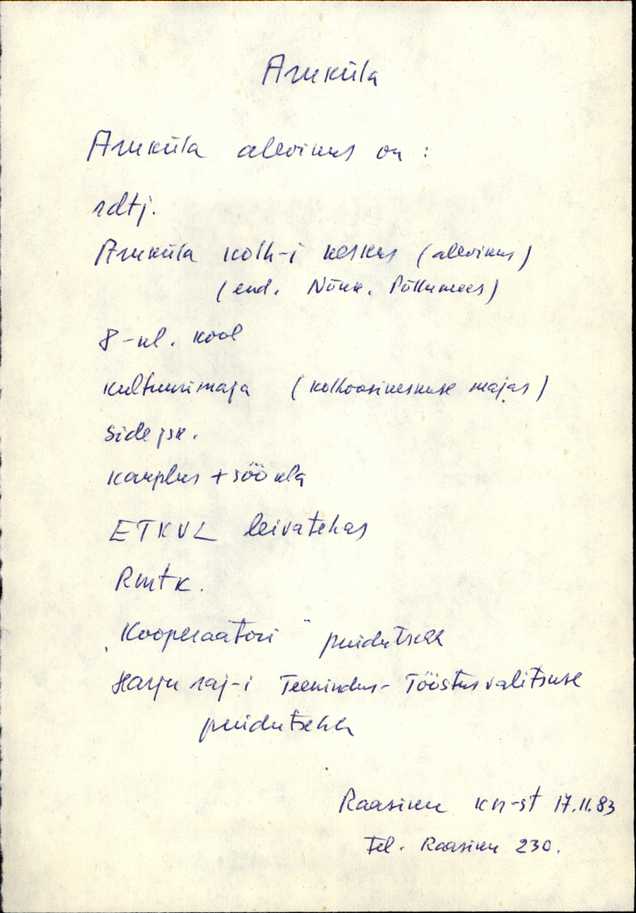 Aruküla
Aruküla alevikus on :
rdtj.
Aruküla kolh-i keskus (alevikus)
(end. Nõuk. Põllumees)
8-kl. kool
kultuurimaja (kolhoosikeskuse majas)
sidejsk.
kauplus + söökla
ETKVL leivatehas
Rmtk.
„Kooperaatori" puidutsehh
Harju raj-i Teenindus-Tööstusvalitsuse
puidutsehh
Raasiku kn-st 17.11.83
Tel. Raasiku 230.